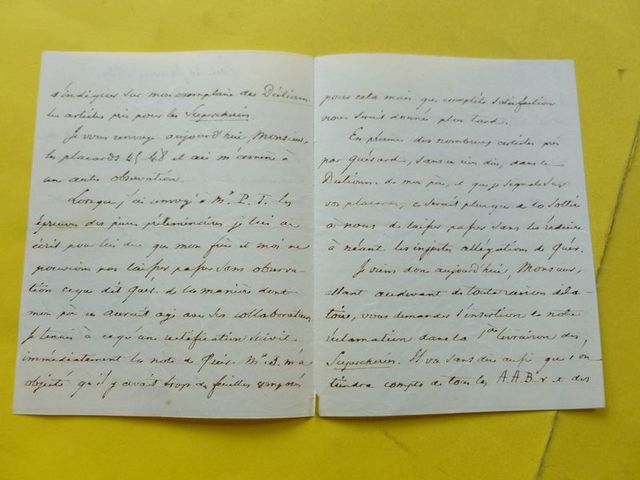 d'indiquer sur mon exemplaire des Dictionn.
les articles pris pour les Supercheries.
Je vous renvoy aujourd'hui, Monsieur,
les placards 45 48 et ceci m'amène à
un autre observation.
Lorsque j'ai envoyé à Mr P. J. les
épreuves des pièces préliminaires je lui ai
écrit pour lui dire que mon frère et moi ne
pouvions pas laisser passer sans observa
tion ce que dit Quer. de la manière dont
mon père en aurait agi avec ses collaborateurs
Je tenais à ce qu'un rectification suivit
immédiatement la note de Quer. Mr D. m'a
objecté qu'il y avait trop de feuilles composées
pour cela mais que complète satisfaction
nous serait donnée plus tard.
En présence des nombreux articles pris
par Quérard, sans en rien dire, dans le
Dictionn. de mon père, et que je signale sur
vos placards, ce serait plus que de la sottise
à nous de laisser passer sans les réduire
à néant les injustes allégations de Quér.
Je viens donc aujourd'hui, Monsieur,
allant audevant de toute raison dila
toire, vous demander l'insertion de notre
réclamation dans la livraison des
Supercheries. Il va sans dire que
tiendra compte de tous les A.A.B.r et des